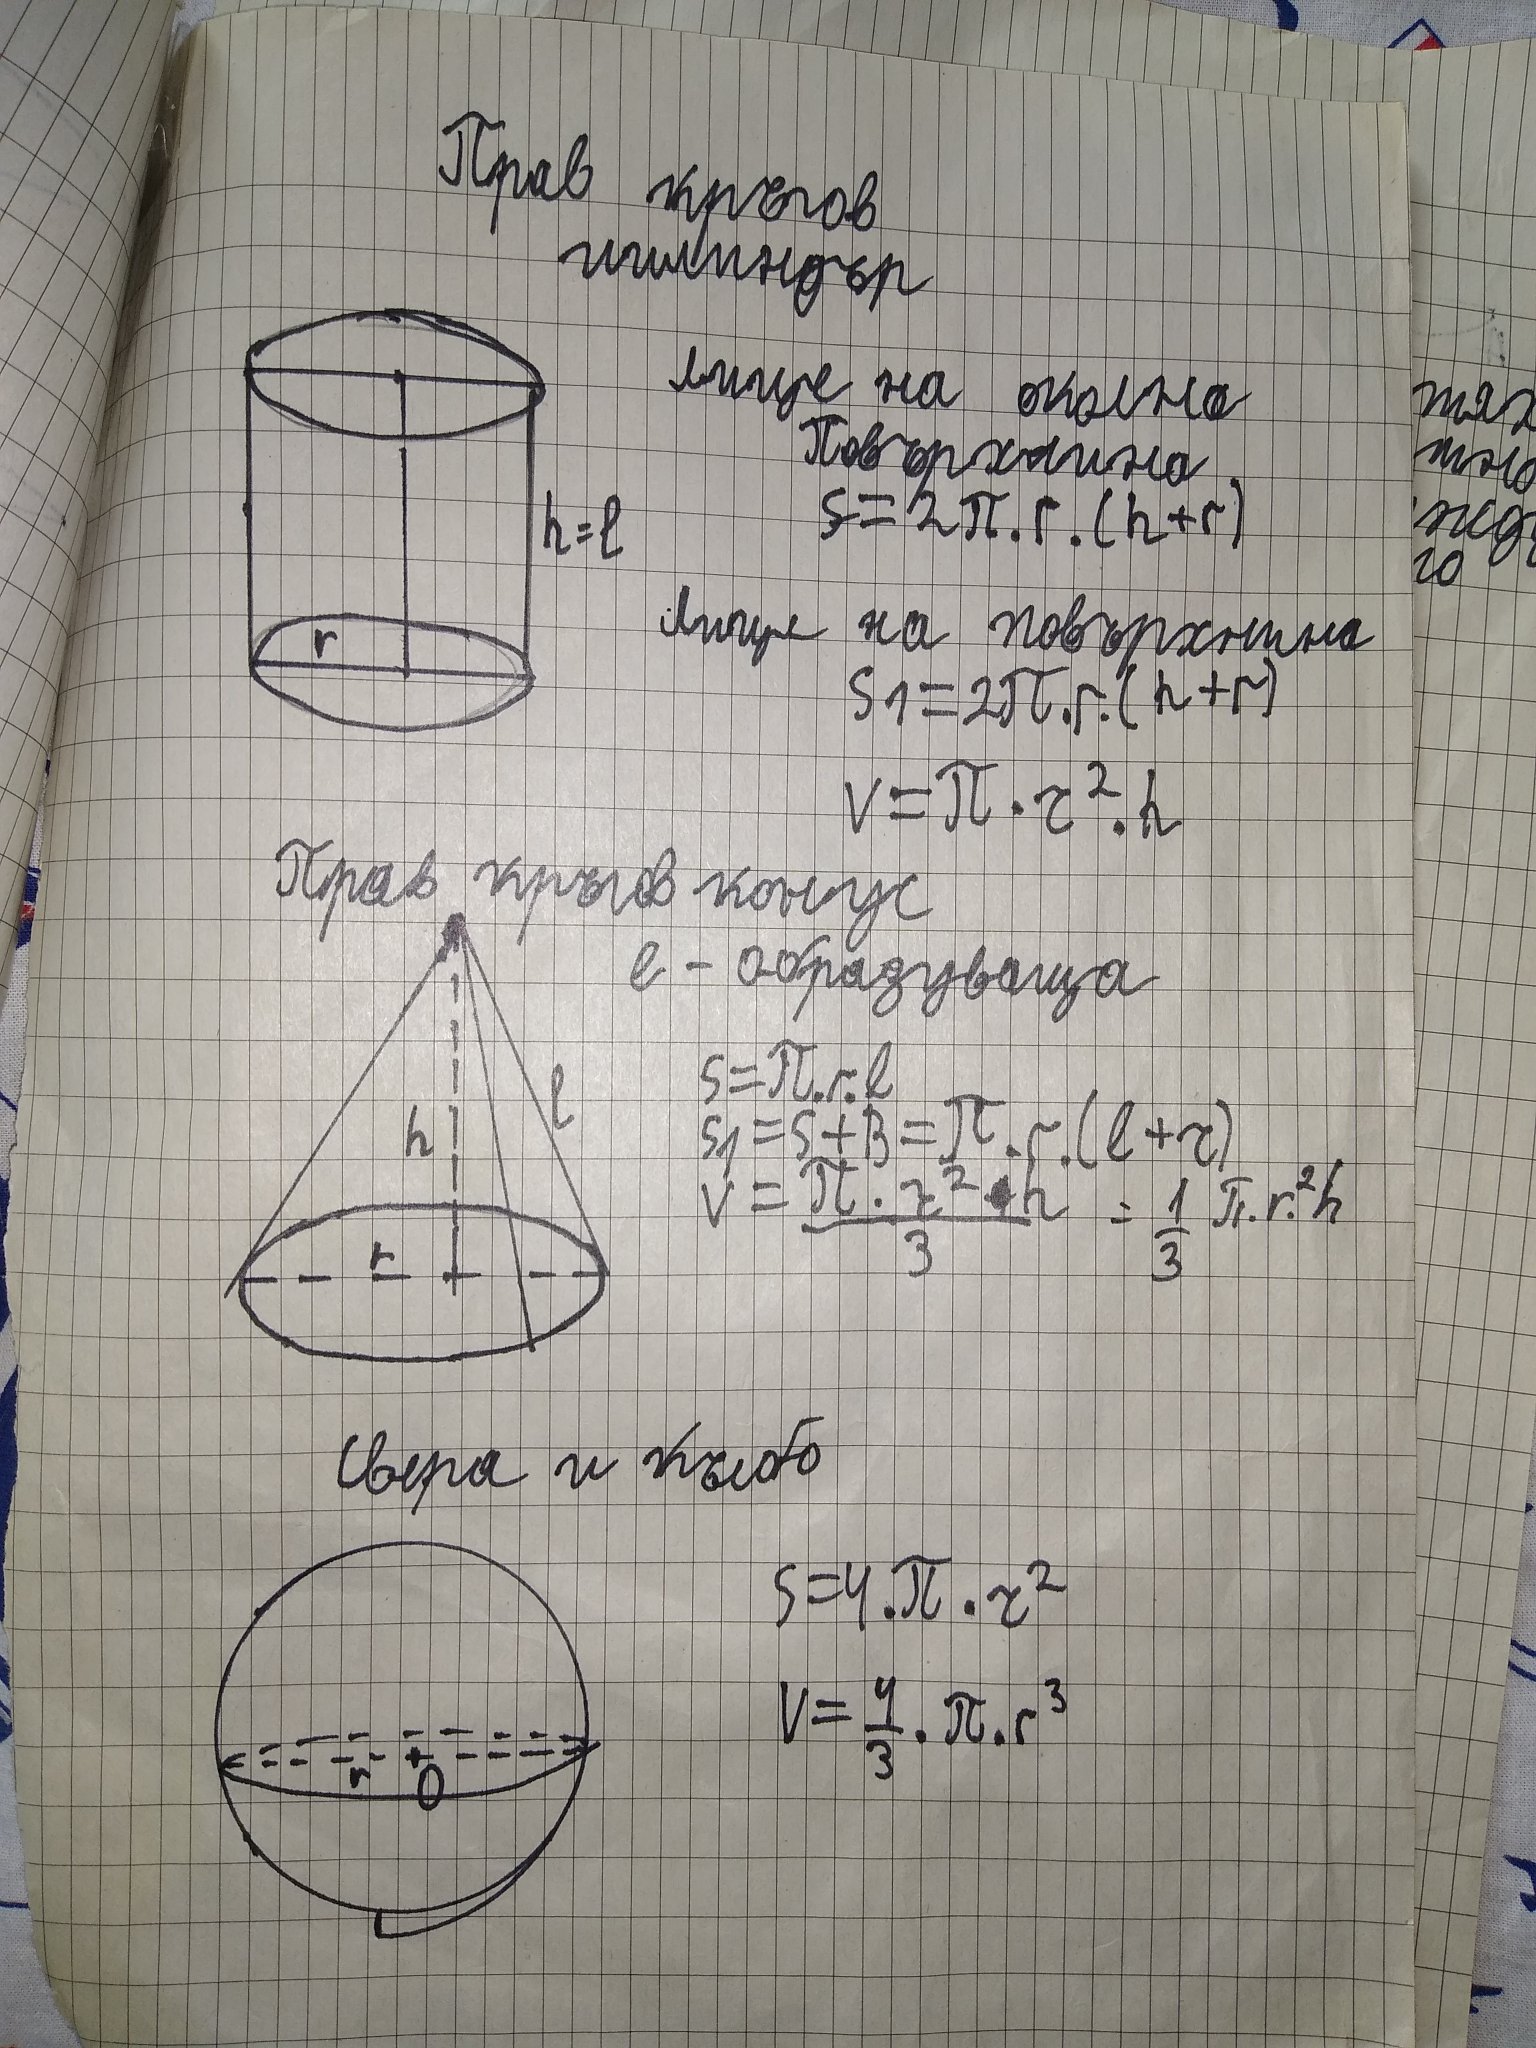 Прав кръгов
цилиндър
h=l
r
лице на околна
Повърхнина
S=2π.r.(h+r)
лице на повърхнина
S1=2π.r.(h+r)
V=π.r².h
Прав кръгов конус
l - образуваща
h
l
r
S=π.r.l
S1=S+B=π.r.(l+r)
V=π.r².h/3 = 1/3 π.r.²h
Свера и кълбо
r
O
S=4.π.r²
V=4/3.π.r³